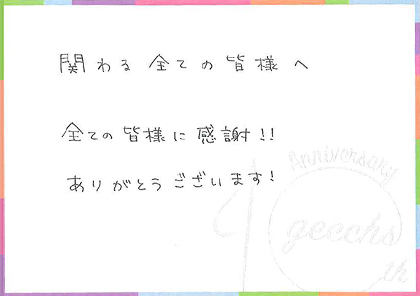 関わる全ての皆様へ
全ての皆様に感謝!!
ありがとうございます!
Anniversary
geechs
th